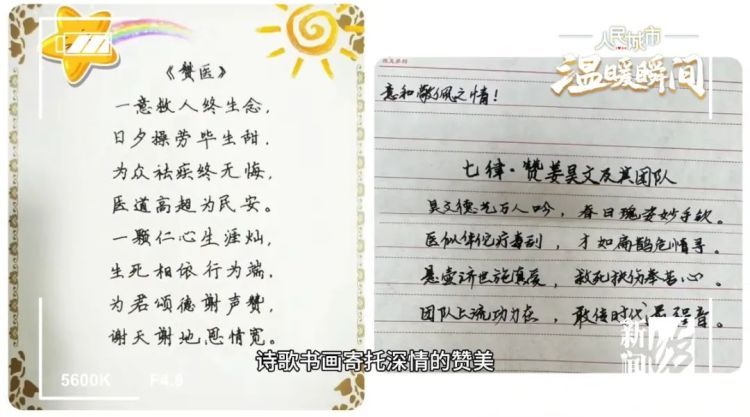 人民城市
温暖瞬间
《赞医》
一意救人终生念,
日夕操劳毕生甜,
为众祛疾终无悔,
医道高超为民安。
一颗仁心生涯灿,
生死相依行为端,
为君颂德谢声赞,
谢天谢地恩情宽。
意和敬佩之情!
七律·赞姜昊文及其团队
昊文德艺万人吟,春日瑰姿妙手钦。
医似华佗疗毒刮,才如扁鹊危情寻。
悬壶济世施真爱,救死扶伤奉苦心。
团队上流功力在,敢使时代最强音。
新闻坊
诗歌书画寄托深情的赞美
5600K F4.6